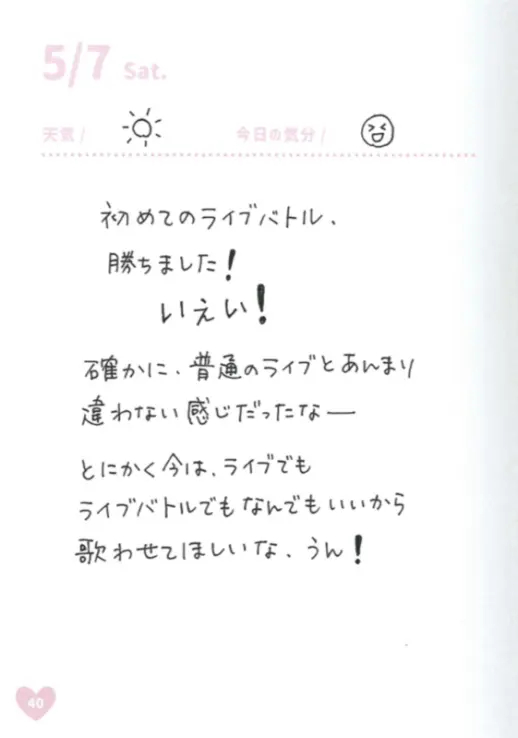 5/7 Sat.
天気 / 今日の気分 /
初めてのライブバトル、
勝ちました！
いぇい！
確かに、普通のライブとあんまり
違わない感じだったなー
とにかく今は、ライブでも
ライブバトルでもなんでもいいから
歌わせてほしいな、うん！
40